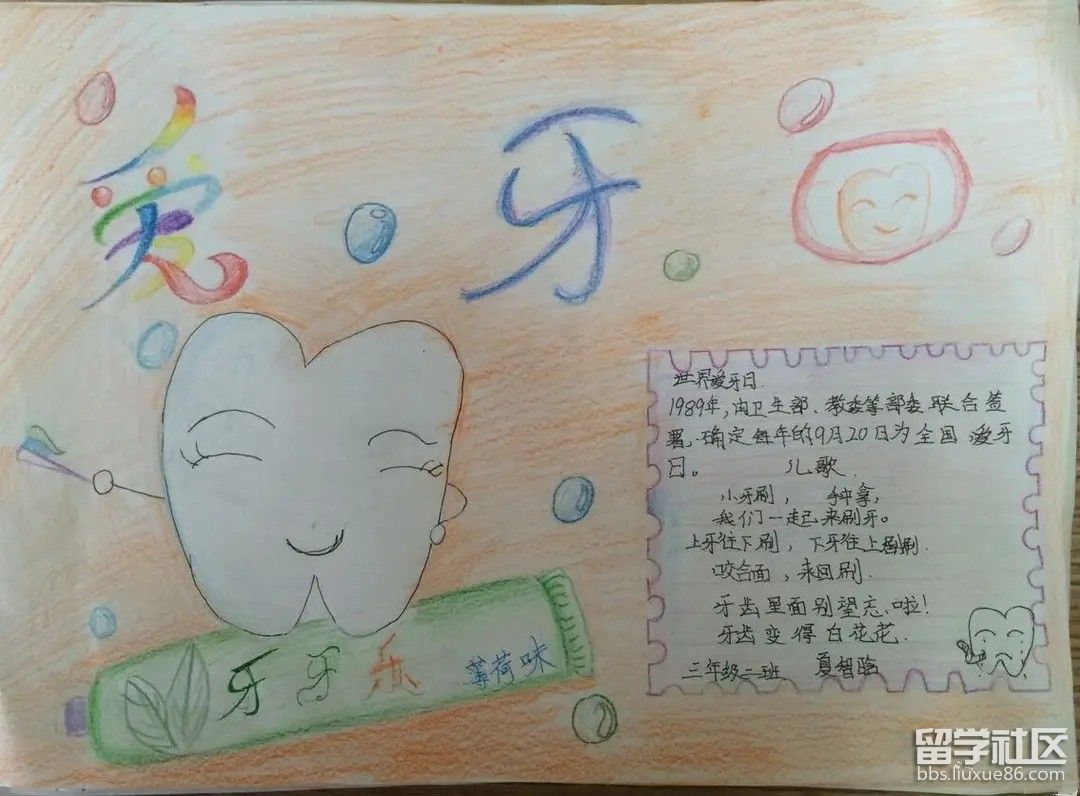 爱牙日
世界爱牙日.
1989年,由卫生部、教委等部委联合签
署.确定每年的9月20日为全国爱牙
日。 儿歌.
小牙刷, 手中拿,
我们一起来刷牙。
上牙往下刷,下牙往上刷.
咬合面,来回刷.
牙齿里面别望忘啦!
牙齿变得白花花.
三年级二班 夏智临
牙牙乐 薄荷味
留学社区
bbs.liuxue86.com